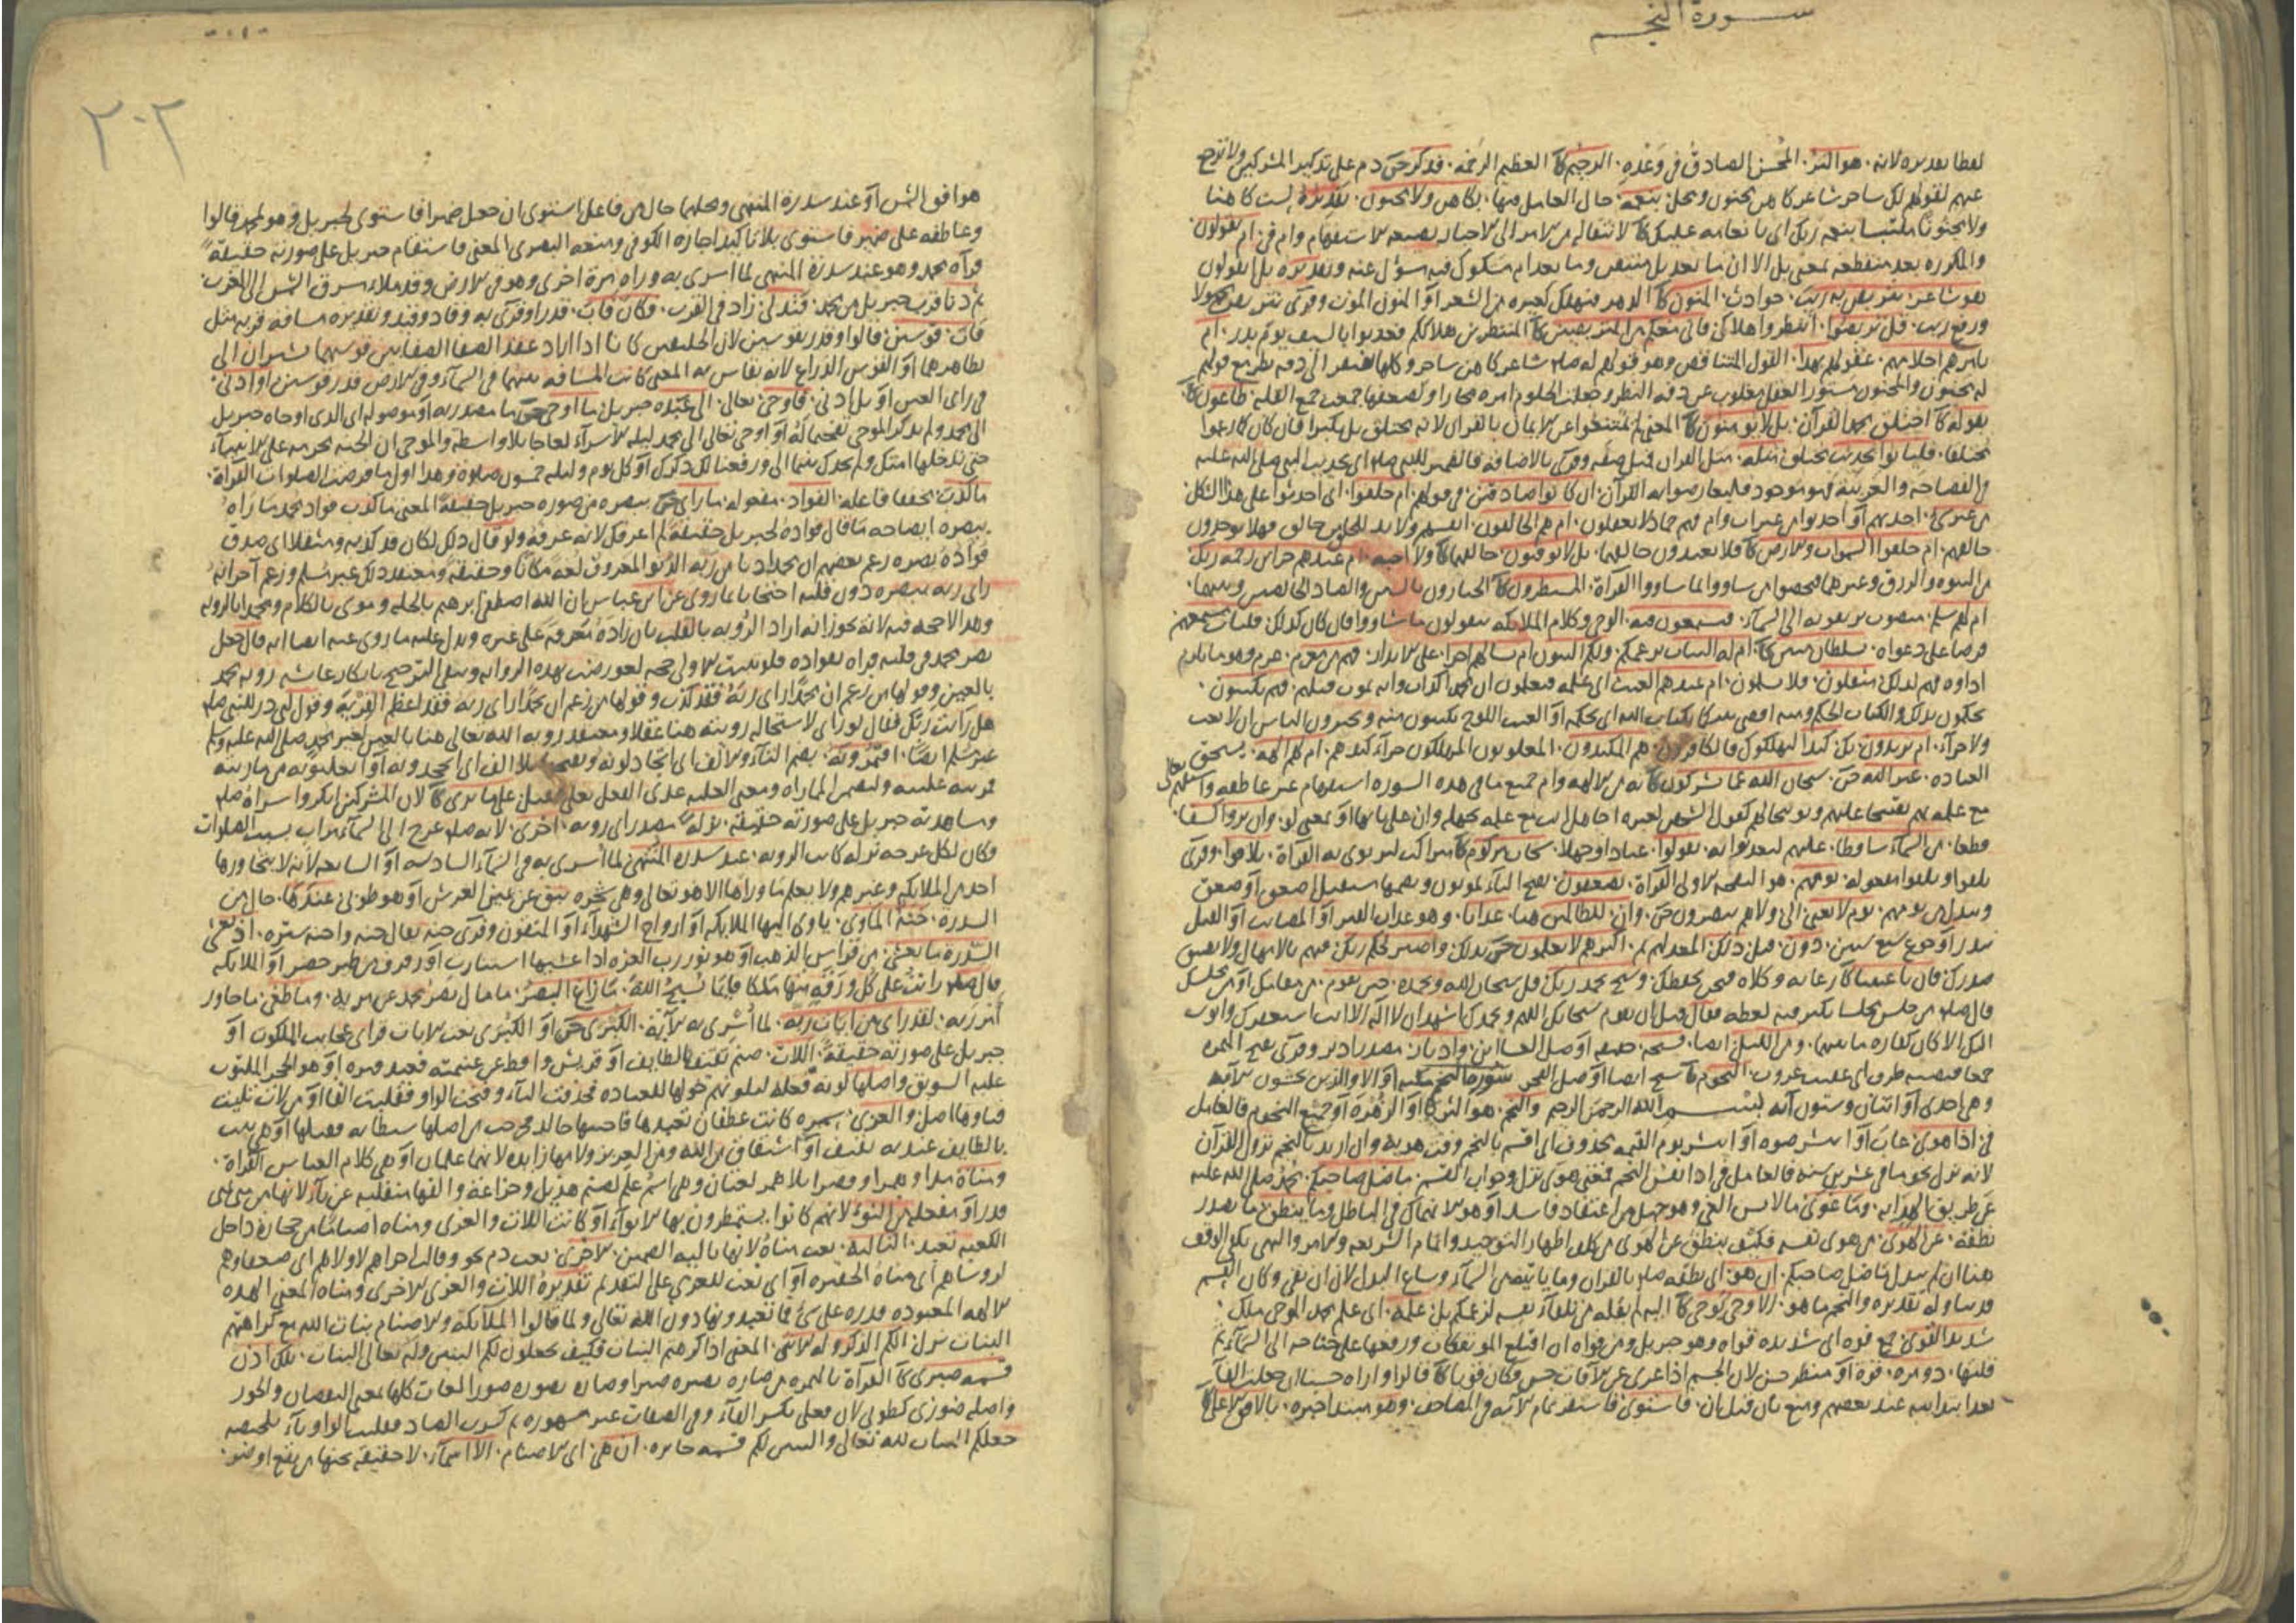 سورة النجم
لفظا تقديره لانه هو البر المحسن الصادق في وعده الرحيم كآ العظيم الرحمة فذكر حق دم على تذكير المشركين ولا ترجع
عنهم لقولهم لك ساحر شاعر كاهن مجنون ومحل بنعمة حال العامل فيها بكاهن ولا مجنون تقديره لست كاهنا
ولا مجنونا ملتبسا بنعمة ربك اي بانعامه عليك كآ لانتقاله من الامر الى الاخبار بصيغة الاستفهام وام في ام يقولون
والمكررة بعد منقطعة بمعنى بل الا ان ما بعد بل متيقن وما بعد ام مشكوك فيه مسؤل عنه وتقديره بل ايقولون
هو شاعر نتربص به ريب حوادث المنون كآ الدهر فيهلك كغيره من الشعراء او المنون الموت وقرئ يتربص مجهولا
ورفع ريب قل تربصوا انتظروا هلاكي فاني معكم من المتربصين كآ المنتظرين هلاككم فعذبوا بالسيف يوم بدر ام
تامرهم احلامهم عقولهم بهذا القول المتناقض وهو قولهم له صلم شاعر كاهن ساحر وكلها تفتقر الى دقة نظر مع قولهم
له مجنون والمجنون مستور العقل مغلوب عن دقة النظر وجعلت الحلوم امرة مجازا ولضعفها جمعت جمع القلة طاغون كآ
يقوله كآ اختلق محمد القرآن بل لا يؤمنون كآ المعنى لم يمتنعوا عن الايمان بالقران لانه مختلق بل تكبرا فان كان كما زعموا
مختلقا فلياتوا بحديث مختلق مثله مثل القران قبل صفة وقرئ بالاضافة فالضمير للنبي صلم اي بحديث النبي صلى الله عليه
في الفصاحة والعربية فهو موجود فليعارضوا به القرآن ان كانوا صادقين في قولهم ام خلقوا اي احدثوا على هذا الشكل
من غير شيء احدثهم او احدثوا من غير اب وام فهم جماد لا يعقلون ام هم الخالقون انفسهم ولا بد للخلق من خالق فهلا يوحدون
خالقهم ام خلقوا السموات والارض كآ فلا يعبدون خالقهما بل لا يوقنون خالقهما كآ ولا احبه ام عندهم خزائن رحمة ربك
من النبوة والرزق وغيرهما فيخصوا من شاؤوا بما شاؤوا القرآة المسيطرون كآ الجبارون بالسين والصاد الخالصين وبينهما
ام لهم سلم منصوب يرتقون به الى السمآء يستمعون فيه الوحي وكلام الملايكة فيقولون ما شاؤوا فان كان كذلك فليات مستمعهم
فرضا على دعواه بسلطان مبين كآ ام له البنات بزعمكم ولكم البنون ام تسالهم اجرا على الانذار فهم من مغرم غرم وهو ما يلزم
اداؤه فهم لذلك مثقلون فلا يسلمون ام عندهم الغيب اي علمه فيعلمون ان محمدا كذاب وانه يموت قبلهم فهم يكتبون
يحكمون بذلك والكتاب الحكم ومنه اقض بيننا بكتاب الله اي بحكمه او الغيب اللوح يكتبون منه ويخبرون الناس ان لا بعث
ولا جزآء ام يريدون بك كيدا ليهلكوك فالكافرون هم المكيدون المغلوبون المهلكون جزآء كيدهم ام لهم اله يستحق
العبادة غير الله حق سبحان الله عما يشركون كآ به من الالهة وام جميع ما في هذه السورة استفهام غير عاطفة واستفهم تعالى
مع علمه بهم تقبيحا عليهم وتوبيخا لهم كقول الشخص لغيره اجاهل انت مع علمه بجهله وان على بابها او بمعنى لو وان يروا كسفا
قطعا من السمآء ساقطا عليهم ليعذبوا به يقولوا عنادا وجهلا سحاب مركوم كآ متراكب لنرتوي به القرآة يلاقوا وقرئ
يلقوا ويلقوا مفعوله يومهم هو النفخة الاولى القرآة يصعقون بفتح اليآء يموتون وبضمها مستقبل اصعق او صعق
ويبدل من يومهم يوم لا يغني الى ولا هم ينصرون حق وان للظالمين هنا عذابا وهو عذاب القبر او المصايب او القتل
ببدر او جوع سبع سنين دون قبل ذلك المعد لهم ثم اكثرهم لا يعلمون حق بذلك واصبر لحكم ربك فيهم بالامهال ولا يضيق
صدرك فانك باعيننا كآ رعاية وكلاة فنحن نحفظك وسبح بحمد ربك قل سبحان الله وبحمده حين تقوم من مقامك او من مجلسك
قال صلم من جلس مجلسا يكثر فيه لغطه فقال قبل ان يقوم سبحانك اللهم وبحمدك اشهد ان لا اله الا انت استغفرك واتوب
اليك الا كان كفارة ما بينهما ومن الليل ايضا فسبحه حقيقة او صل العشاءين وادبار مصدر ادبر وقرئ بفتح الهمزة
جمعا فنصبه ظرف اي عقيب غروب النجوم كآ سبح ايضا او صل الفجر سورة النجم مكية او الا والذين يجتنبون الآية
وهي احدى او اثنتان وستون آية بسم الله الرحمن الرحيم والنجم هو الثريا او الزهرة او جميع النجوم فالعامل
في اذا هوى غاب او انتثر ضوءه او انتثر يوم القيمة محذوف اي اقسم بالنجم وقت هويه وان اريد بالنجم نزول القرآن
لانه نزل نجوما في عشرين سنة فالعامل في اذا نفس النجم فمعنى هوى نزل وجواب القسم ما ضل صاحبكم محمد صلى الله عليه
عن طريق الهداية وما غوى ما لابس الغي وهو جهل من اعتقاد فاسد او هو الانهماك في الباطل وما ينطق ما يصدر
نطقه عن الهوى من هوى نفسه فكيف ينطق عن الهوى من كلف اظهار التوحيد واتمام الشريعة والامر والنهي يكفي الوقف
هنا ان لم يبدل ما ضل صاحبكم ان هو اي نطقه صلم بالقران وما ياتيه من السمآء وساغ البدل لان ان نفي وكان القسم
قد تناوله تقديره والنجم ما هو الا وحي يوحى كآ اليه لم ينقله من تلقآء نفسه لزعمكم بل علمه اي علم محمدا الوحي ملك
شديد القوى جمع قوة اي شديدة قواه وهو جبريل ومن قواه ان اقتلع المؤتفكات ورفعها على جناحه الى السمآء ثم
قلبها ذو مرة قوة او منظر حسن لان الجسم اذا عري عن الآفات حسن وكان قويا كآ قالوا واراه حسنا ان جعلت الفآء
بعد ابتدائية عند بعضهم ومنع بان قبل بان فاستوى فاستقر تمام الآية في المصاحف وهو مبتدا خبره بالافق الاعلى كآ
٢٠٢
هو افق الشمس او عند سدرة المنتهى ومحلهما حال من فاعل استوى ان جعل ضميرا فاستوى لجبريل وهو لمحمد قالوا
وعاطفه على ضمير فاستوى بلا تاكيد اجازه الكوفي ومنعه البصري المعنى فاستقام جبريل على صورته حقيقة
فرآه محمد وهو عند سدرة المنتهى لما اسري به ورآه مرة اخرى وهو في الارض وقد ملاء شرق الشمس الى الغرب
ثم دنا قرب جبريل من محمد فتدلى زاد في القرب وكان قاب قدر وقرئ به وقاد وقيد وتقديره مسافة قربه مثل
قاب قوسين قالوا وقدر بقوسين لان الحليفين كانا اذا اراد عقد الصفا الصقا بين قوسيهما يشيران الى
تظاهرهما او القوس الذراع لانه يقاس به المعنى كانت المسافة بينهما في السمآء وفي الارض قدر قوسين او ادنى
في راي العين او بل ادنى فاوحى تعالى الى عبده جبريل ما اوحى حق ما مصدرية او موصولة اي الذي اوحاه جبريل
الى محمد ولم يذكر الموحى تفخيما له او اوحى تعالى الى محمد ليلة الاسرآء لفاحا بلا واسطة والموحى ان الجنة محرمة على الانبيآء
حتى تدخلها امتك والم يجدك يتيما الى ورفعنا لك ذكرك او كل يوم وليلة خمسون صلوة وهذا اول ما فرضت الصلوات القرآة
ما كذب مخففا فاعله الفؤاد مفعوله ما راى حق ببصره من صورة جبريل حقيقة المعنى ما كذب فؤاد محمد ما رآه
ببصره ايضاحه ما قال فؤاده لجبريل حقيقة لم اعرفك لانه عرفه ولو قال ذلك لكان قد كذبه ومثقلا اي صدق
فؤاده بصره زعم بعضهم ان محمدا دنا من ربه الدنو المعروف لغة مكانا وحقيقة ومعتقد ذلك غير مسلم وزعم آخر انه
راى ربه ببصره دون قلبه احتجاجا بما روي عن ابن عباس ان الله اصطفى ابرهيم بالخلة وموسى بالكلام ومحمدا بالرؤية
وهذا لا حجة فيه لانه يجوز انه اراد الرؤية بالقلب بان زاده معرفة على غيره ويدل عليه ما روي عنه ايضا انه قال جعل
بصر محمد في قلبه فرآه بفؤاده فلو ثبت الاولى حجة لعورضت بهذه الرواية وبقي الترجيح بانكار عائشة رؤية محمد
بالعين وقولها من زعم ان محمدا راى ربه فقد كذب وقولها من زعم ان محمدا راى ربه فقد اعظم الفرية وقول ابي ذر للنبي صلم
هل رايت ربك فقال نور اني لاستحالة رؤيته هنا عقلا ومعتقد رؤية الله تعالى هنا بالعين لغير محمد صلى الله عليه وسلم
غير مسلم ايضا افتمرونه بضم التآء والالف اي اتجادلونه وبفتحها بلا الف اي اتجحدونه او اتغلبونه من ماريته
فمريته غلبته ولتضمن المماراة ومعنى الغلبة عدي الفعل بعلى فقيل على ما يرى كآ لان المشركين انكروا اسراه صلم
ومشاهدته جبريل على صورته حقيقة نزلة مصدر اي رؤية اخرى لانه صلم عرج الى السمآء مرات بسبب الصلوات
وكان لكل عرجة نزلة كانت الرؤية عند سدرة المنتهى لما اسري به في السمآء السادسة او السابعة لانه لا يتجاوزها
احد من الملايكة وغيرهم ولا يعلم ما وراها الا هو تعالى وهي شجرة نبق عن يمين العرش او هو طوبى عندها حال من
السدرة جنة المأوى ياوي اليها الملايكة او ارواح الشهدآء او المتقون وقرئ جنه يقال جنه واجنه ستره اذ يغشى
السدرة ما يغشى من فراش الذهب او هو نور رب العزة اذا غشيها استنارت او رفرف من طير خضر او الملايكة
قال صلم رايت على كل ورقة منها ملكا قائما يسبح الله ما زاغ البصر ما مال بصر محمد عن مرئيه وما طغى ما جاوز
امر ربه لقد راى من ايات ربه لما اسري به الآية الكبرى حق او الكبرى نعت الايات فراى عجايب الملكوت او
جبريل على صورته حقيقة اللات صنم ثقيف بالطايف او قريش واقطع عن غنيمته فعبد قبره او هو الحجر الملتوت
عليه السويق واصلها لوية فعلة ليلونهم حولها للعبادة فحذفت اليآء وفتحت الواو فقلبت الفا او من لات يليت
فتاوها اصل والعزى سمرة كانت غطفان تعبدها فاجتثها خالد فخرجت من اصلها شيطانة فقتلها او هي بيت
بالطايف عند به ثقيف او اشتقاق من الله ومن العزيز ولامها زايدة لانهما علمان او هي كلام العباس القرآة
ومناة مدا وهمزا وقصرا بلا همز لغتان وهي اسم علم لصنم هذيل وخزاعة والفها منقلبة عن يآء لانها من منى يمني
قدر او مفعلة من النوء لانهم كانوا يستمطرون بها الانوآء او كانت اللات والعزى ومناة اصناما من حجارة داخل
الكعبة تعبد الثالثة نعت مناة لانها ثالثة الصنمين الاخرى نعت ذم نحو وقالت اخراهم لاولاهم اي ضعفاوهم
لروساهم اي مناة الحقيرة او اي نعت للعزى على التقديم تقديره اللات والعزى الاخرى ومناة المعنى الهذه
الالهة المعبودة قدرة على شيء فما تعبدونها دون الله تعالى ولما قالوا الملائكة والاصنام بنات الله مع كراهتهم
البنات نزل الكم الذكر وله الانثى المعنى اذا كرهتم البنات فكيف تجعلون لكم البنين وله تعالى البنات تلك اذن
قسمة ضيزى كآ القرآة بالهمزة من ضازه يضيزه ضيزا وضازه يضوزه ضوزا لغات كلها بمعنى النقصان والجور
واصله ضوزى كطوبى لان فعلى بكسر الفآء وفي الصفات غير مشهورة ثم كسرت الضاد فقلبت الواو يآء تلخيصه
جعلكم البنات لله تعالى والبنين لكم قسمة جايرة ان هي اي الاصنام الا اسمآء لا حقيقة تحتها من نفع او ضر